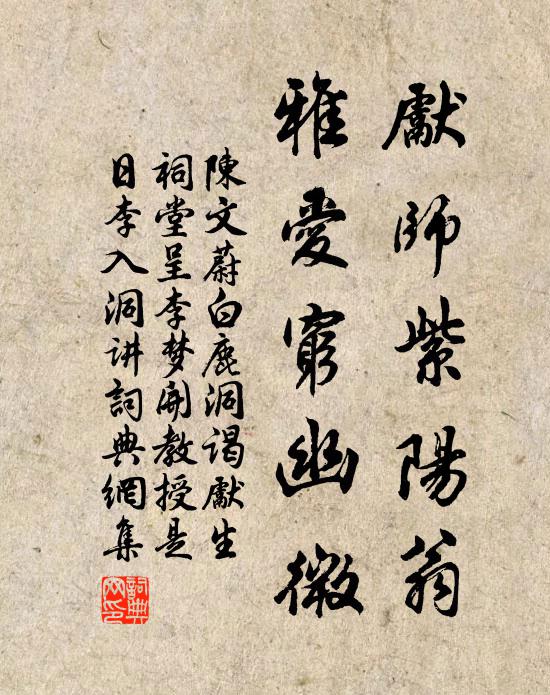 獻師紫陽翁
雅愛窮幽微
陳文蔚白鹿洞谒獻生
祠堂呈李梦開教授是
日李入洞讲詞典網集
詞典
网印